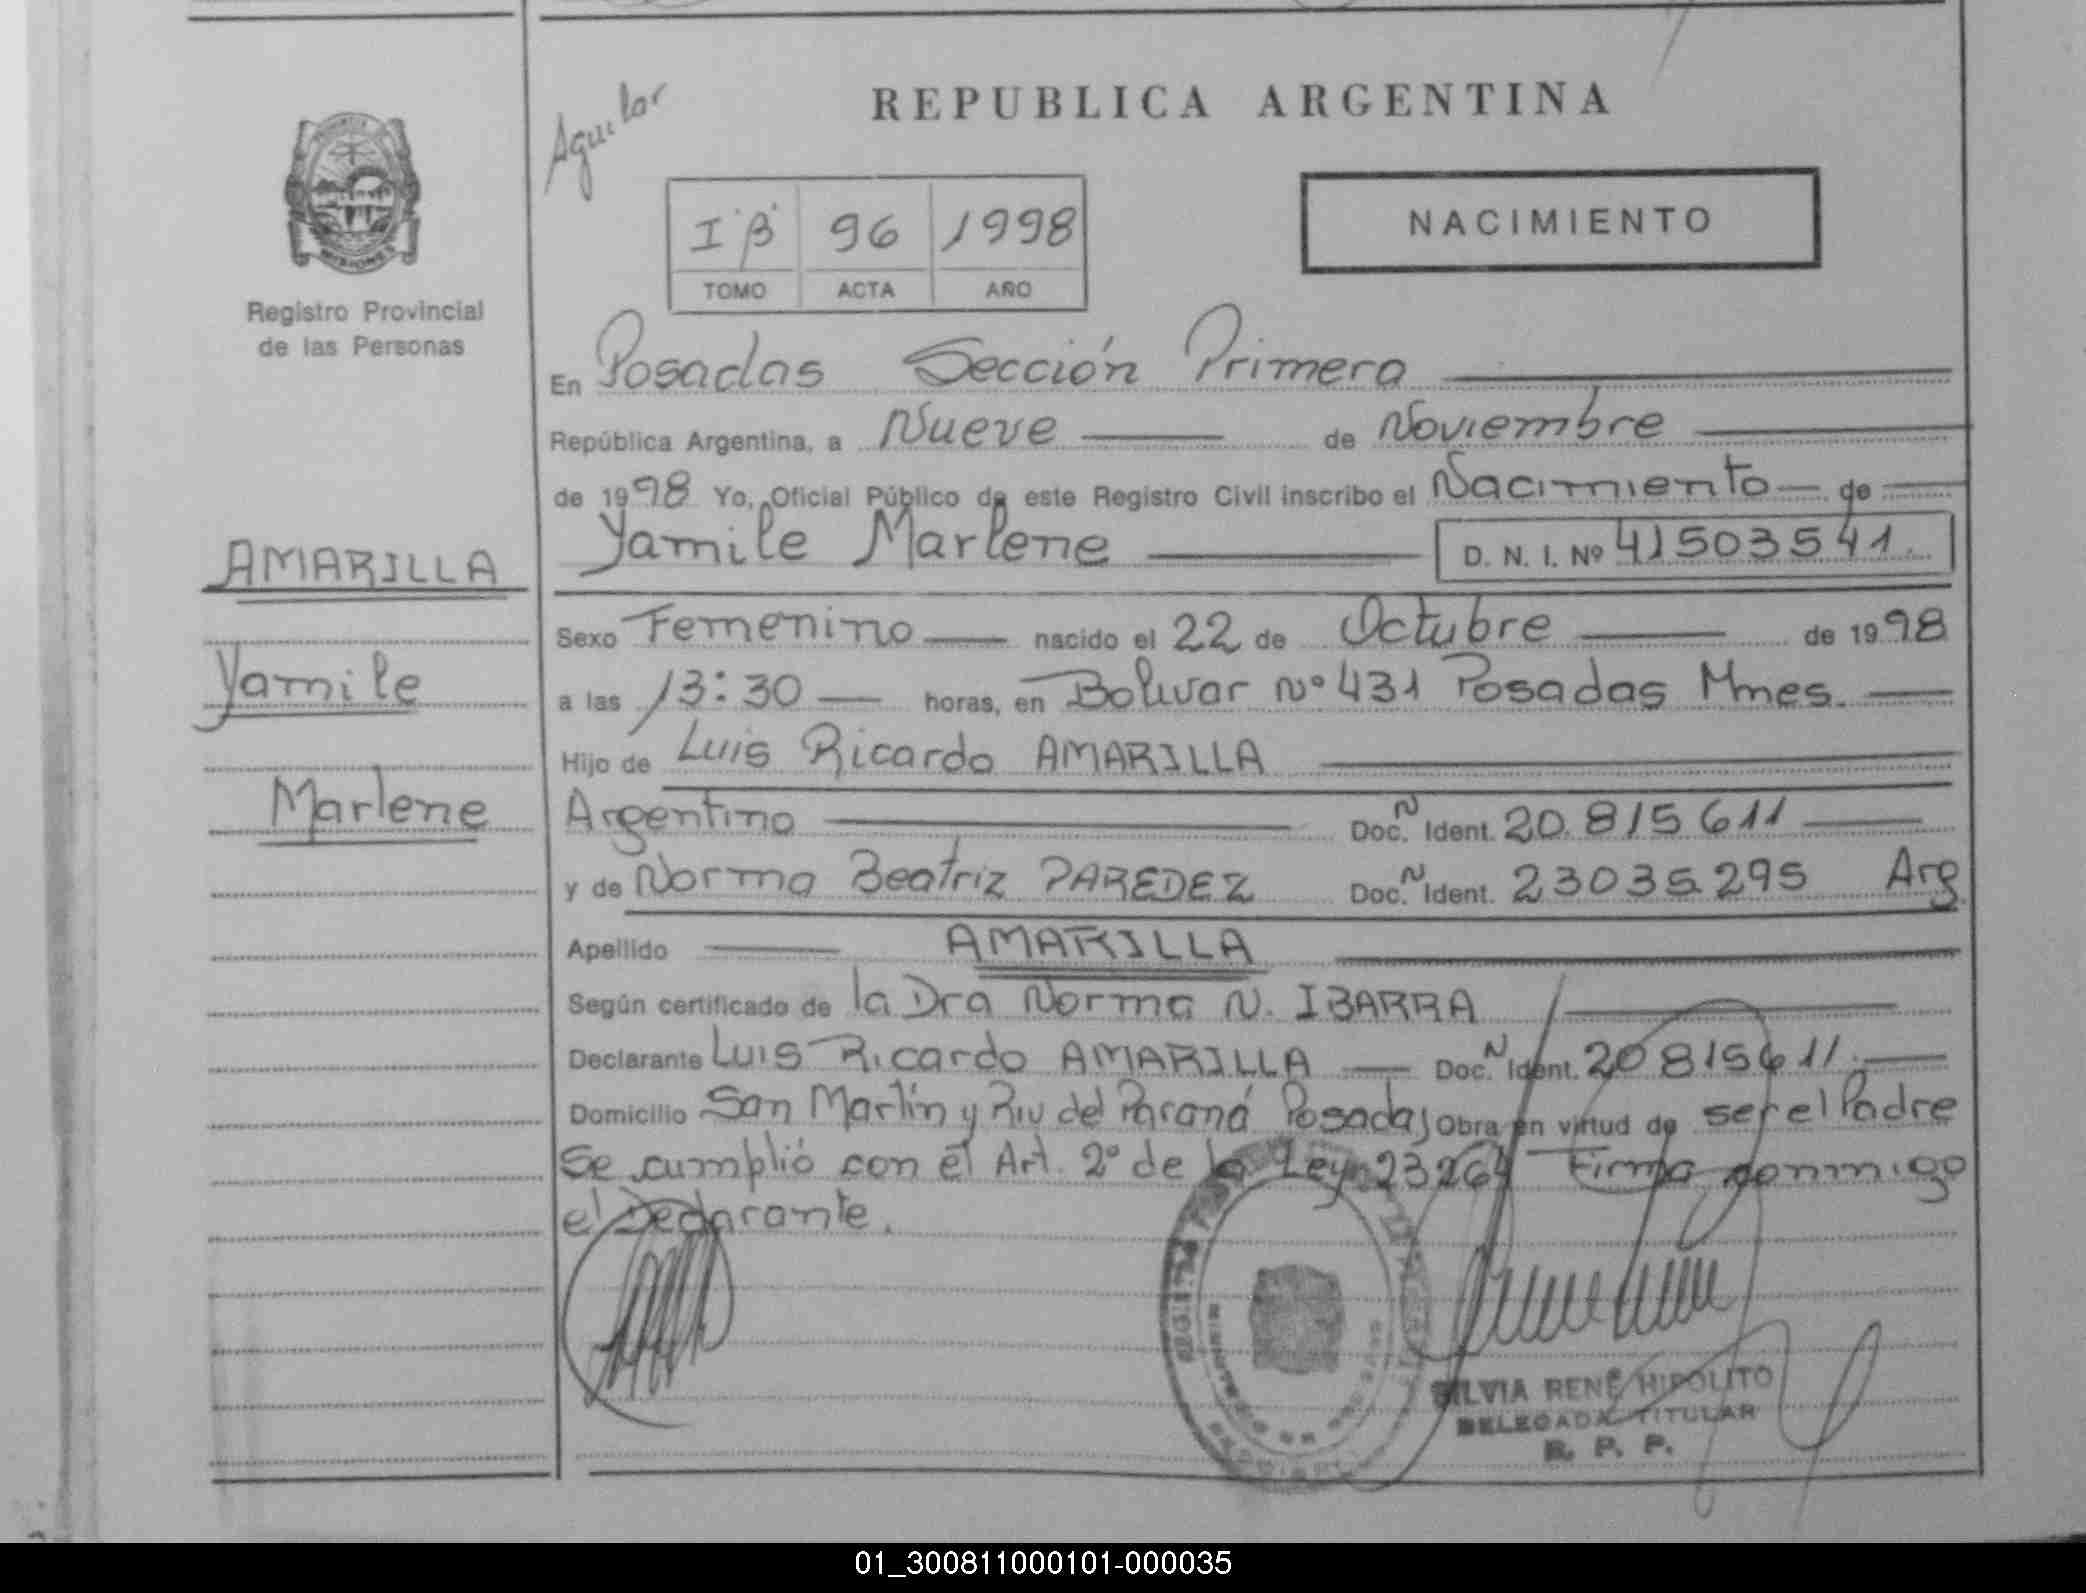 REPUBLICA ARGENTINA
Aguilar
MISIONES
Registro Provincial
de las Personas
I "B" 96 1998
TOMO ACTA AÑO
NACIMIENTO
En Posadas Sección Primera
República Argentina, a Nueve de Noviembre
de 1998 Yo, Oficial Público de este Registro Civil inscribo el Nacimiento de
Yamile Marlene D. N. I. Nº 41503541.
AMARILLA
Yamile
Marlene
Sexo Femenino nacido el 22 de Octubre de 1998
a las 13:30 horas, en Bolivar Nº 431 Posadas Mnes.
Hijo de Luis Ricardo AMARILLA
Argentino Doc. N Ident. 20.815.611
y de Norma Beatriz PAREDEZ Doc. N Ident. 23035295 Arg
Apellido AMARILLA
Según certificado de la Dra Norma N. IBARRA
Declarante Luis Ricardo AMARILLA Doc. N Ident. 20815611.
Domicilio San Martín y Riv del Paraná Posadas Obra en virtud de ser el Padre
Se cumplió con el Art. 2º de la Ley 23264 Firma conmigo
el Declarante.
SILVIA RENÉ HIPOLITO
DELEGADA TITULAR
R. P. P.
01_300811000101-000035